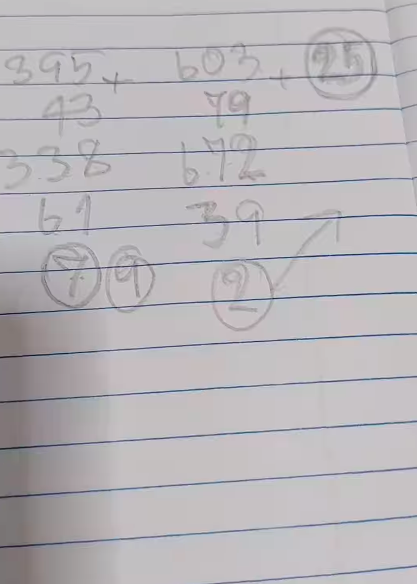 395 + 603 + 25
43 79
338 672
61 39
7 9 2